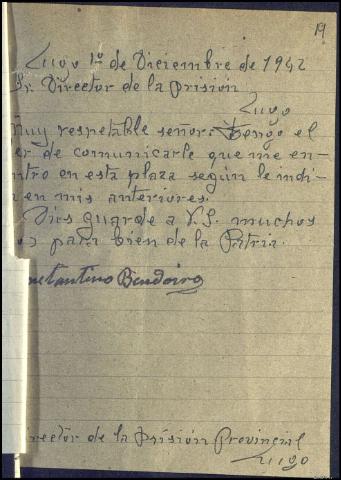 19
Lugo 1º de Diciembre de 1942
Sr. Director de la prisión
Lugo
Muy respetable señor: Tengo el
er de comunicarle que me en-
ntro en esta plaza según le indi-
en mis anteriores.
Dios guarde a V.S. muchos
os para bien de la Patria.
nstantino Bendoiro
irector de la prisión Provincial
Lugo